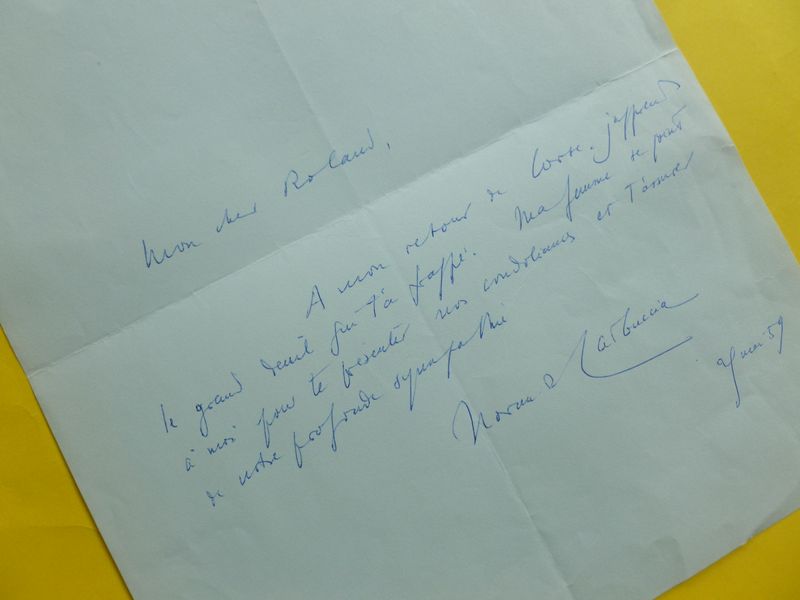 Mon cher Roland,
A mon retour de Corse j'apprends
le grand deuil qui t'a frappé. Ma femme se joint
à moi pour te présenter nos condoléances et t'assurer
de notre profonde sympathie
Carbuccia
mai 59